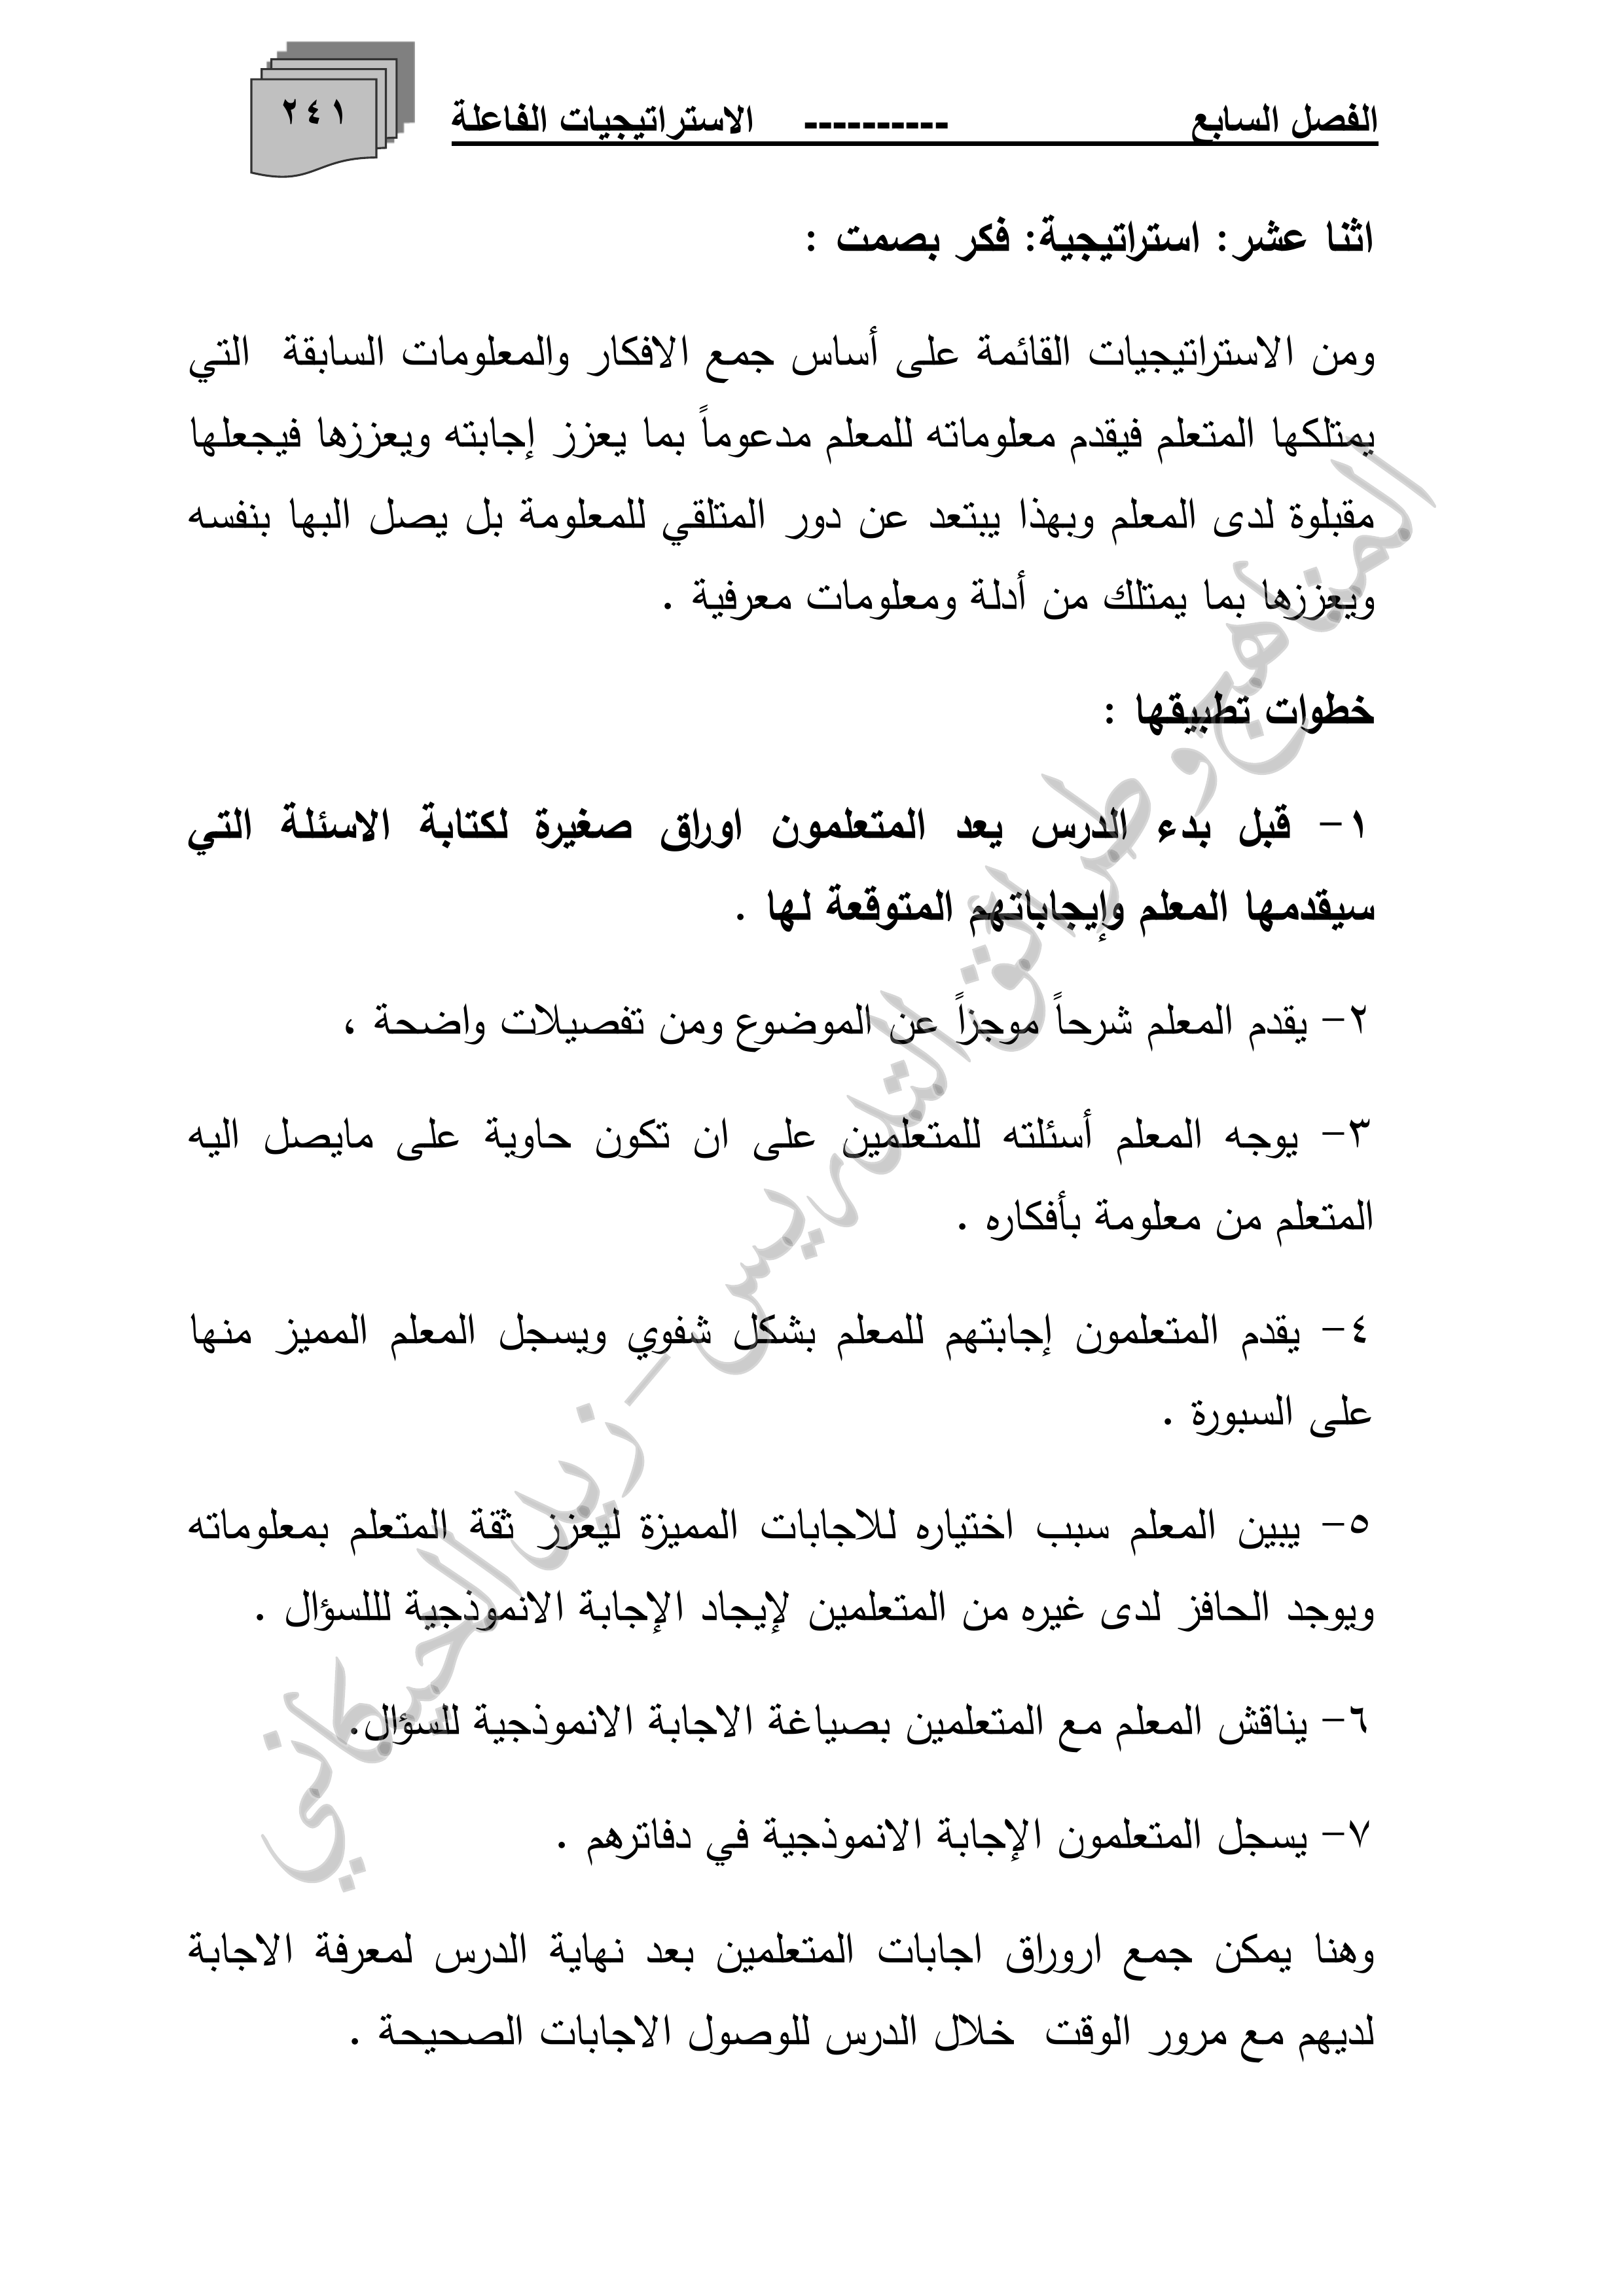 الفصل السابع ---------- الاستراتيجيات الفاعلة
٢٤١
اثنا عشر: استراتيجية: فكر بصمت :
ومن الاستراتيجيات القائمة على أساس جمع الافكار والمعلومات السابقة التي
يمتلكها المتعلم فيقدم معلوماته للمعلم مدعوماً بما يعزز إجابته ويعززها فيجعلها
مقبلوة لدى المعلم وبهذا يبتعد عن دور المتلقي للمعلومة بل يصل البها بنفسه
ويعززها بما يمتلك من أدلة ومعلومات معرفية .
خطوات تطبيقها :
١- قبل بدء الدرس يعد المتعلمون اوراق صغيرة لكتابة الاسئلة التي
سيقدمها المعلم وإيجاباتهم المتوقعة لها .
٢- يقدم المعلم شرحاً موجزاً عن الموضوع ومن تفصيلات واضحة ،
٣- يوجه المعلم أسئلته للمتعلمين على ان تكون حاوية على مايصل اليه
المتعلم من معلومة بأفكاره .
٤- يقدم المتعلمون إجابتهم للمعلم بشكل شفوي ويسجل المعلم المميز منها
على السبورة .
٥- يبين المعلم سبب اختياره للاجابات المميزة ليعزز ثقة المتعلم بمعلوماته
ويوجد الحافز لدى غيره من المتعلمين لإيجاد الإجابة الانموذجية لللسؤال .
٦- يناقش المعلم مع المتعلمين بصياغة الاجابة الانموذجية للسؤال.
٧- يسجل المتعلمون الإجابة الانموذجية في دفاترهم .
وهنا يمكن جمع اروراق اجابات المتعلمين بعد نهاية الدرس لمعرفة الاجابة
لديهم مع مرور الوقت خلال الدرس للوصول الاجابات الصحيحة .
المناهج وطرائق التدريس - زيد الحيكاني